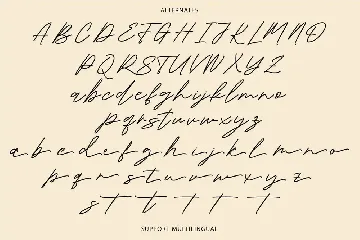 ALTERNATES
A B C D E F G H I J K L M N O
P Q R S T U V W X Y Z
a b c d e f g h i j k l m n o
p q r s t u v w x y z
a b c d e f g h i j k l m n o
p q r s t u v w x y z
s t t t t t t
SUPPORT MULTILINGUAL